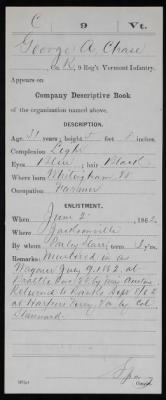 C 9 Vt.
George A. Chase
Co. K, 9 Reg't Vermont Infantry.
Appears on
Company Descriptive Book
of the organization named above.
DESCRIPTION.
Age 21 years; height 5 feet 8 inches.
Complexion Light
Eyes Blue; hair Black
Where born Whitingham Vt
Occupation Farmer
ENLISTMENT.
When June 2, 1862.
Where Jacksonville
By whom Starr; term 3 y'rs.
Remarks: Mustered in as
Wagoner July 9. 1862, at
Brattleboro Vt by
Returned to Ranks Sept
at Harpers Ferry Va by Col
Stannard
Copyist.